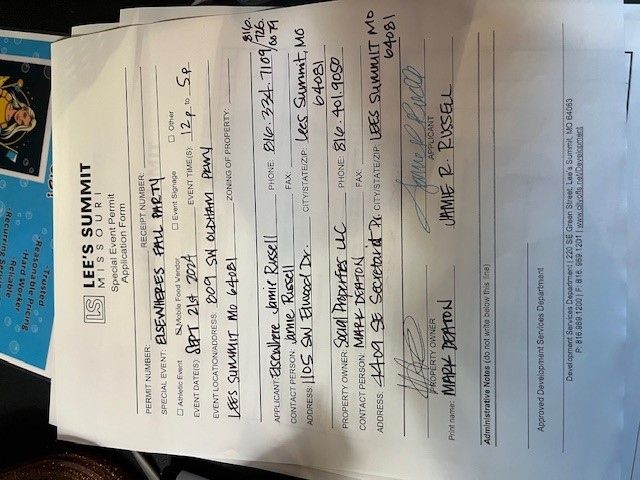 LS LEE'S SUMMIT
MISSOURI
Special Event Permit
Application Form
PERMIT NUMBER: RECEIPT NUMBER:
SPECIAL EVENT: ELSEWHERES FALL PARTY
☐ Athletic Event ☑ Mobile Food Vendor ☐ Event Signage ☐ Other
EVENT DATE(S): SEPT 21st 2024 EVENT TIME(S): 12p to 5p
EVENT LOCATION/ADDRESS: 809 SW OLDHAM PKWY
LEES SUMMIT MO 64081 ZONING OF PROPERTY:
APPLICANT: Elsewhere Jamie Russell PHONE: 816.334.7109/
816.
726.
CONTACT PERSON: Jamie Russell FAX:
ADDRESS: 1105 SW Elwood Dr. CITY/STATE/ZIP: Lees Summit, MO
64081
PROPERTY OWNER: Social Properties LLC PHONE: 816.401.9050
CONTACT PERSON: MARK DEATON FAX:
ADDRESS: 4409 SE Secretariat Dr. CITY/STATE/ZIP: LEES SUMMIT MO
64081
PROPERTY OWNER APPLICANT
Print name: MARK DEATON JAMIE R. RUSSELL
Administrative Notes (do not write below this line)
Approved Development Services Department
Development Services Department | 220 SE Green Street, Lee's Summit, MO 64063
P: 816.969.1200 | F: 816.969.1201 |
Trusted
Reasonable Pricing
Hard Worker
Reliable